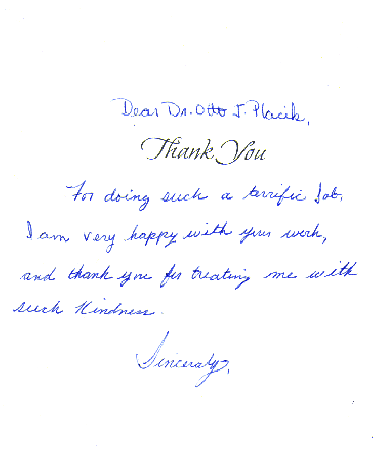 Dear Dr. Otto J. Placik,
Thank You
For doing such a terrific Job,
I am very happy with your work,
and thank you for treating me with
such Kindness.
Sincerely,